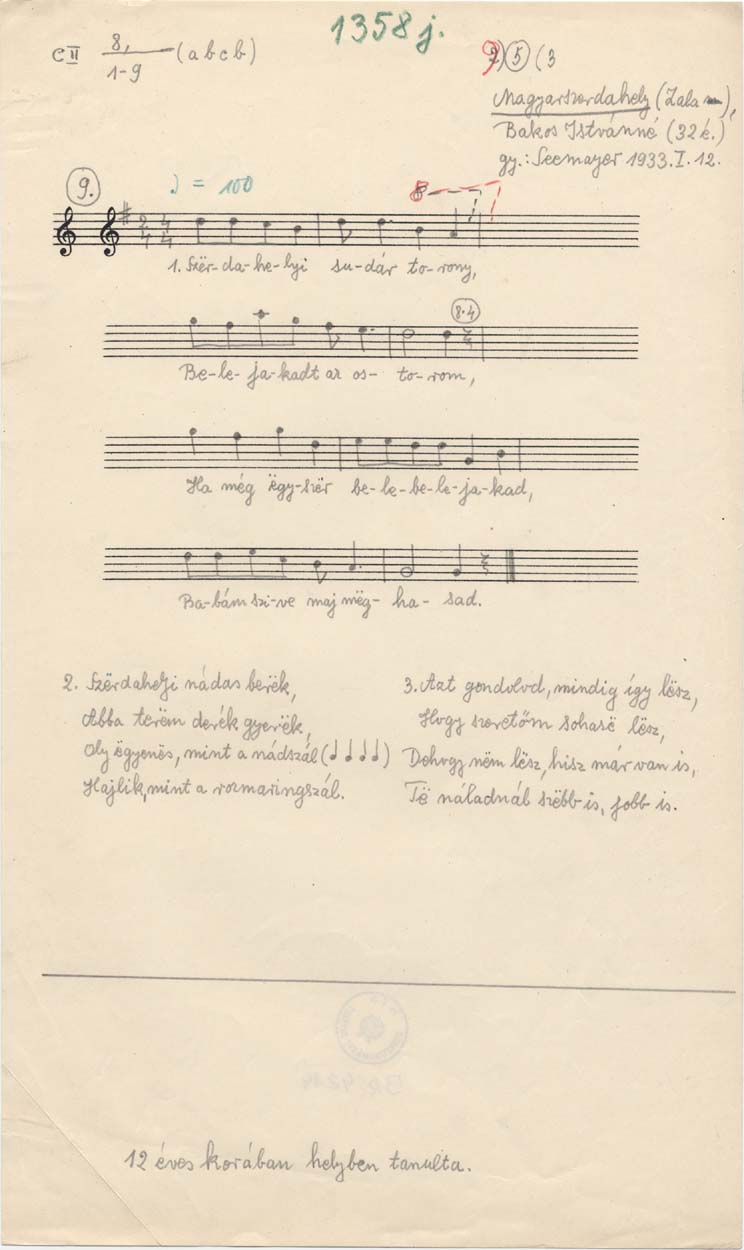 1358 j.
C II 8, / 1-9 (a b c b)
9) 5 (3
Magyarszerdahely (Zala m),
Bakos Istvánné (32 é.)
gy.: Seemayer 1933. I. 12.
9.
♩ = 100
8
2/4 4/4
1. Szër-da-he-lyi su-dár to-rony,
8.4
Be-le-ja-kadt az os-to-rom,
Ha még ëgy-szër be-le-be-le-ja-kad,
Ba-bám szi-ve maj mëg-ha-sad.
2. Szërdahelji nádas berëk,
Abba terëm derék gyerëk,
Oly ëgyenës, mint a nádszál (♩ ♩ ♩ ♩)
Hajlik, mint a rozmaringszál.
3. Azt gondolod, mindig így lësz,
Hogy szeretőm sohasë lësz,
Dehogy nëm lësz, hisz már van is,
Të náladnál szëbb is, jobb is.
12 éves korában helyben tanulta.